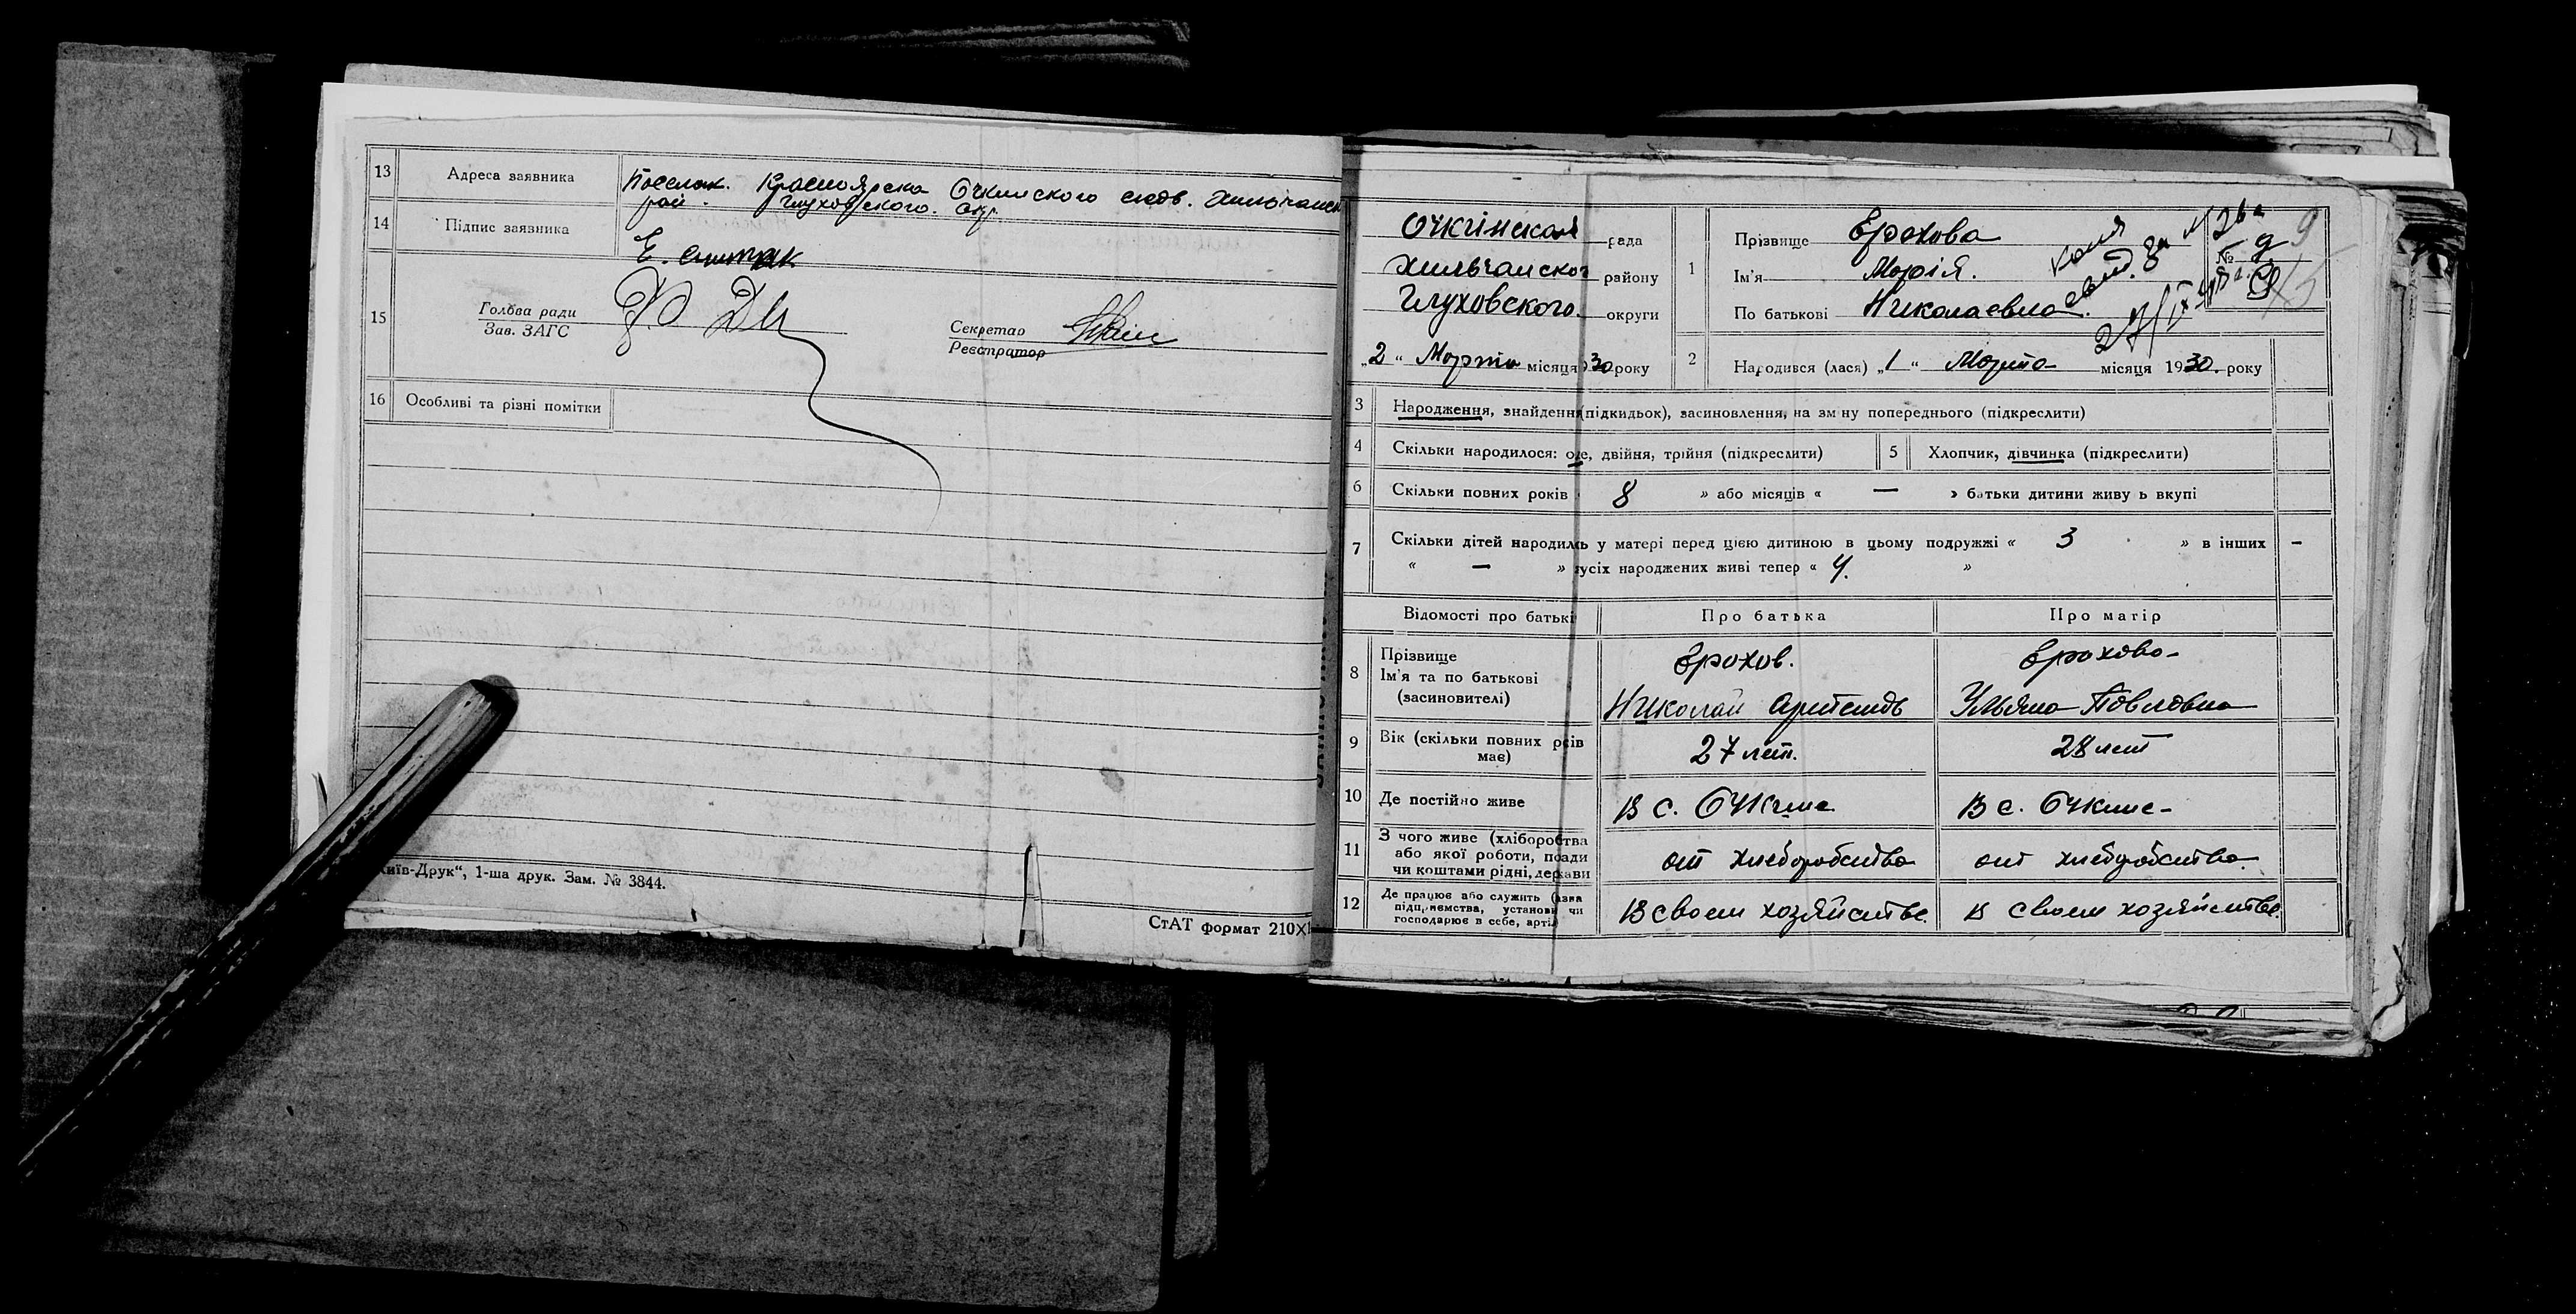 13 Адреса заявника Поселок. Красноярска Очкинского сюдв. Хильчанск
рай. Глуховского. окр.
14 Підпис заявника
Е.
15 Голова ради
Зав. ЗАГС
Секретар
Реєстратор
16 Особливі та різні помітки
Київ-Друк“, 1-ша друк. Зам. № 3844.
СтАТ формат 210×1
Очкинская рада
Хильчанског району
Глуховского. округи
„2“ Марта місяця 1930 року
1 Прізвище Ерохова
Ім'я Марія.
По батькові Николаевна.
копія
свид. за №
27/IX
№ 9
9
2 Народився (лася) „1“ Марта місяця 1930. року
3 Народження, знайдення (підкидьок), засиновлення, на зм ну попереднього (підкреслити)
4 Скільки народилося: оде, двійня, трійня (підкреслити) 5 Хлопчик, дівчинка (підкреслити)
6 Скільки повних років 8 » або місяців « — » батьки дитини живу ь вкупі
7 Скільки дітей народилсь у матері перед цією дитиною в цьому подружжі « 3 » в інших —
« — » усіх народжених живі тепер « 4. »
Відомості про батькі Про батька Про матір
8 Прізвище
Ім'я та по батькові
(засиновителі)
Ерохов.
Николай
Ерохова
Ульяна Павловна
9 Вік (скільки повних рсів
має)
27 лет.
28 лет
10 Де постійно живе В с. Очкине В с. Очкине
11 З чого живе (хліборобства
або якої роботи, поади
чи коштами рідні, держави
от хлеборобства
от хлеборобства
12 Де працює або служить (азва
підприємства, установи чи
господарює в себе, артіл
В своем хозяйстве.
в своем хозяйстве.